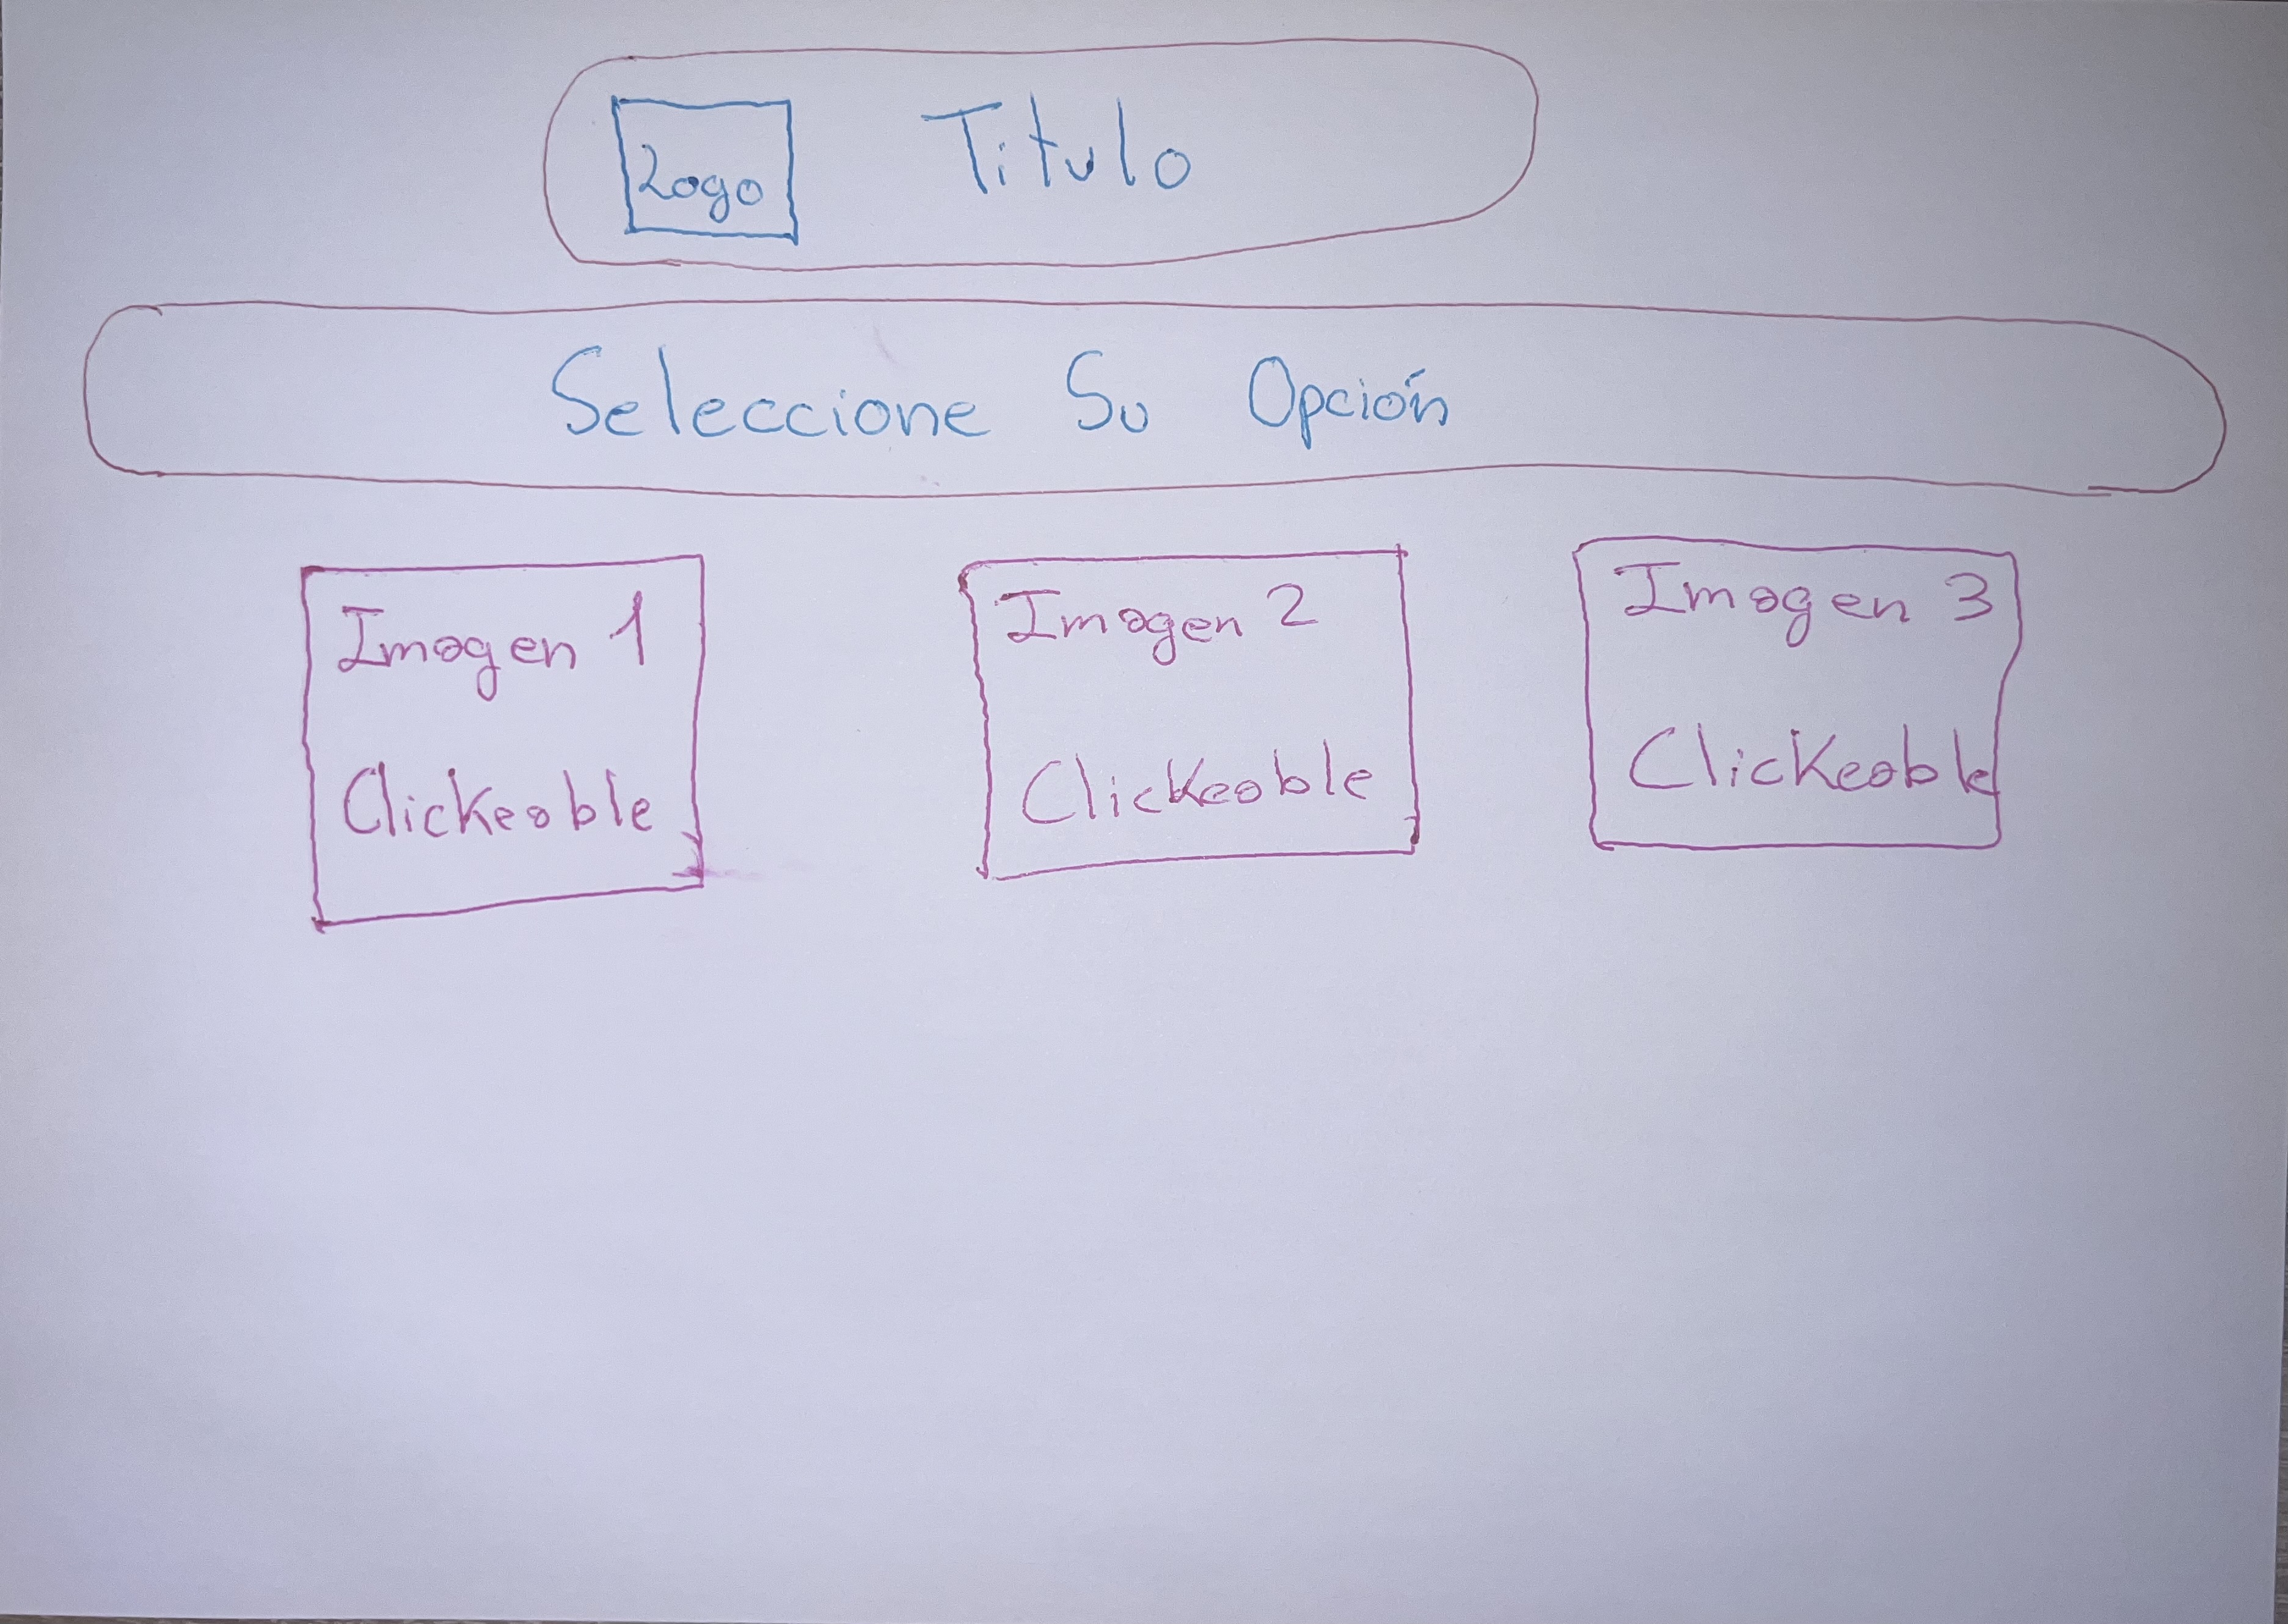 Logo
Titulo
Seleccione Su Opción
Imagen 1
Clickeable
Imagen 2
Clickeable
Imagen 3
Clickeable